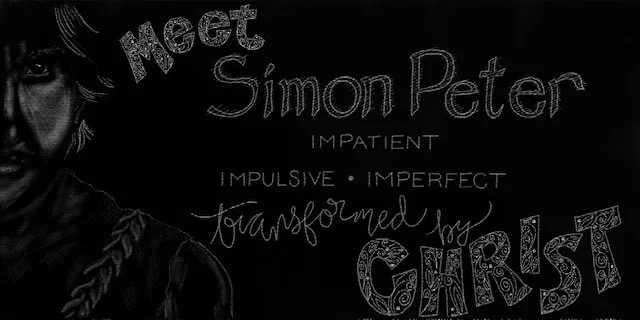 Meet
Simon Peter
IMPATIENT
IMPULSIVE • IMPERFECT
transformed by
CHRIST